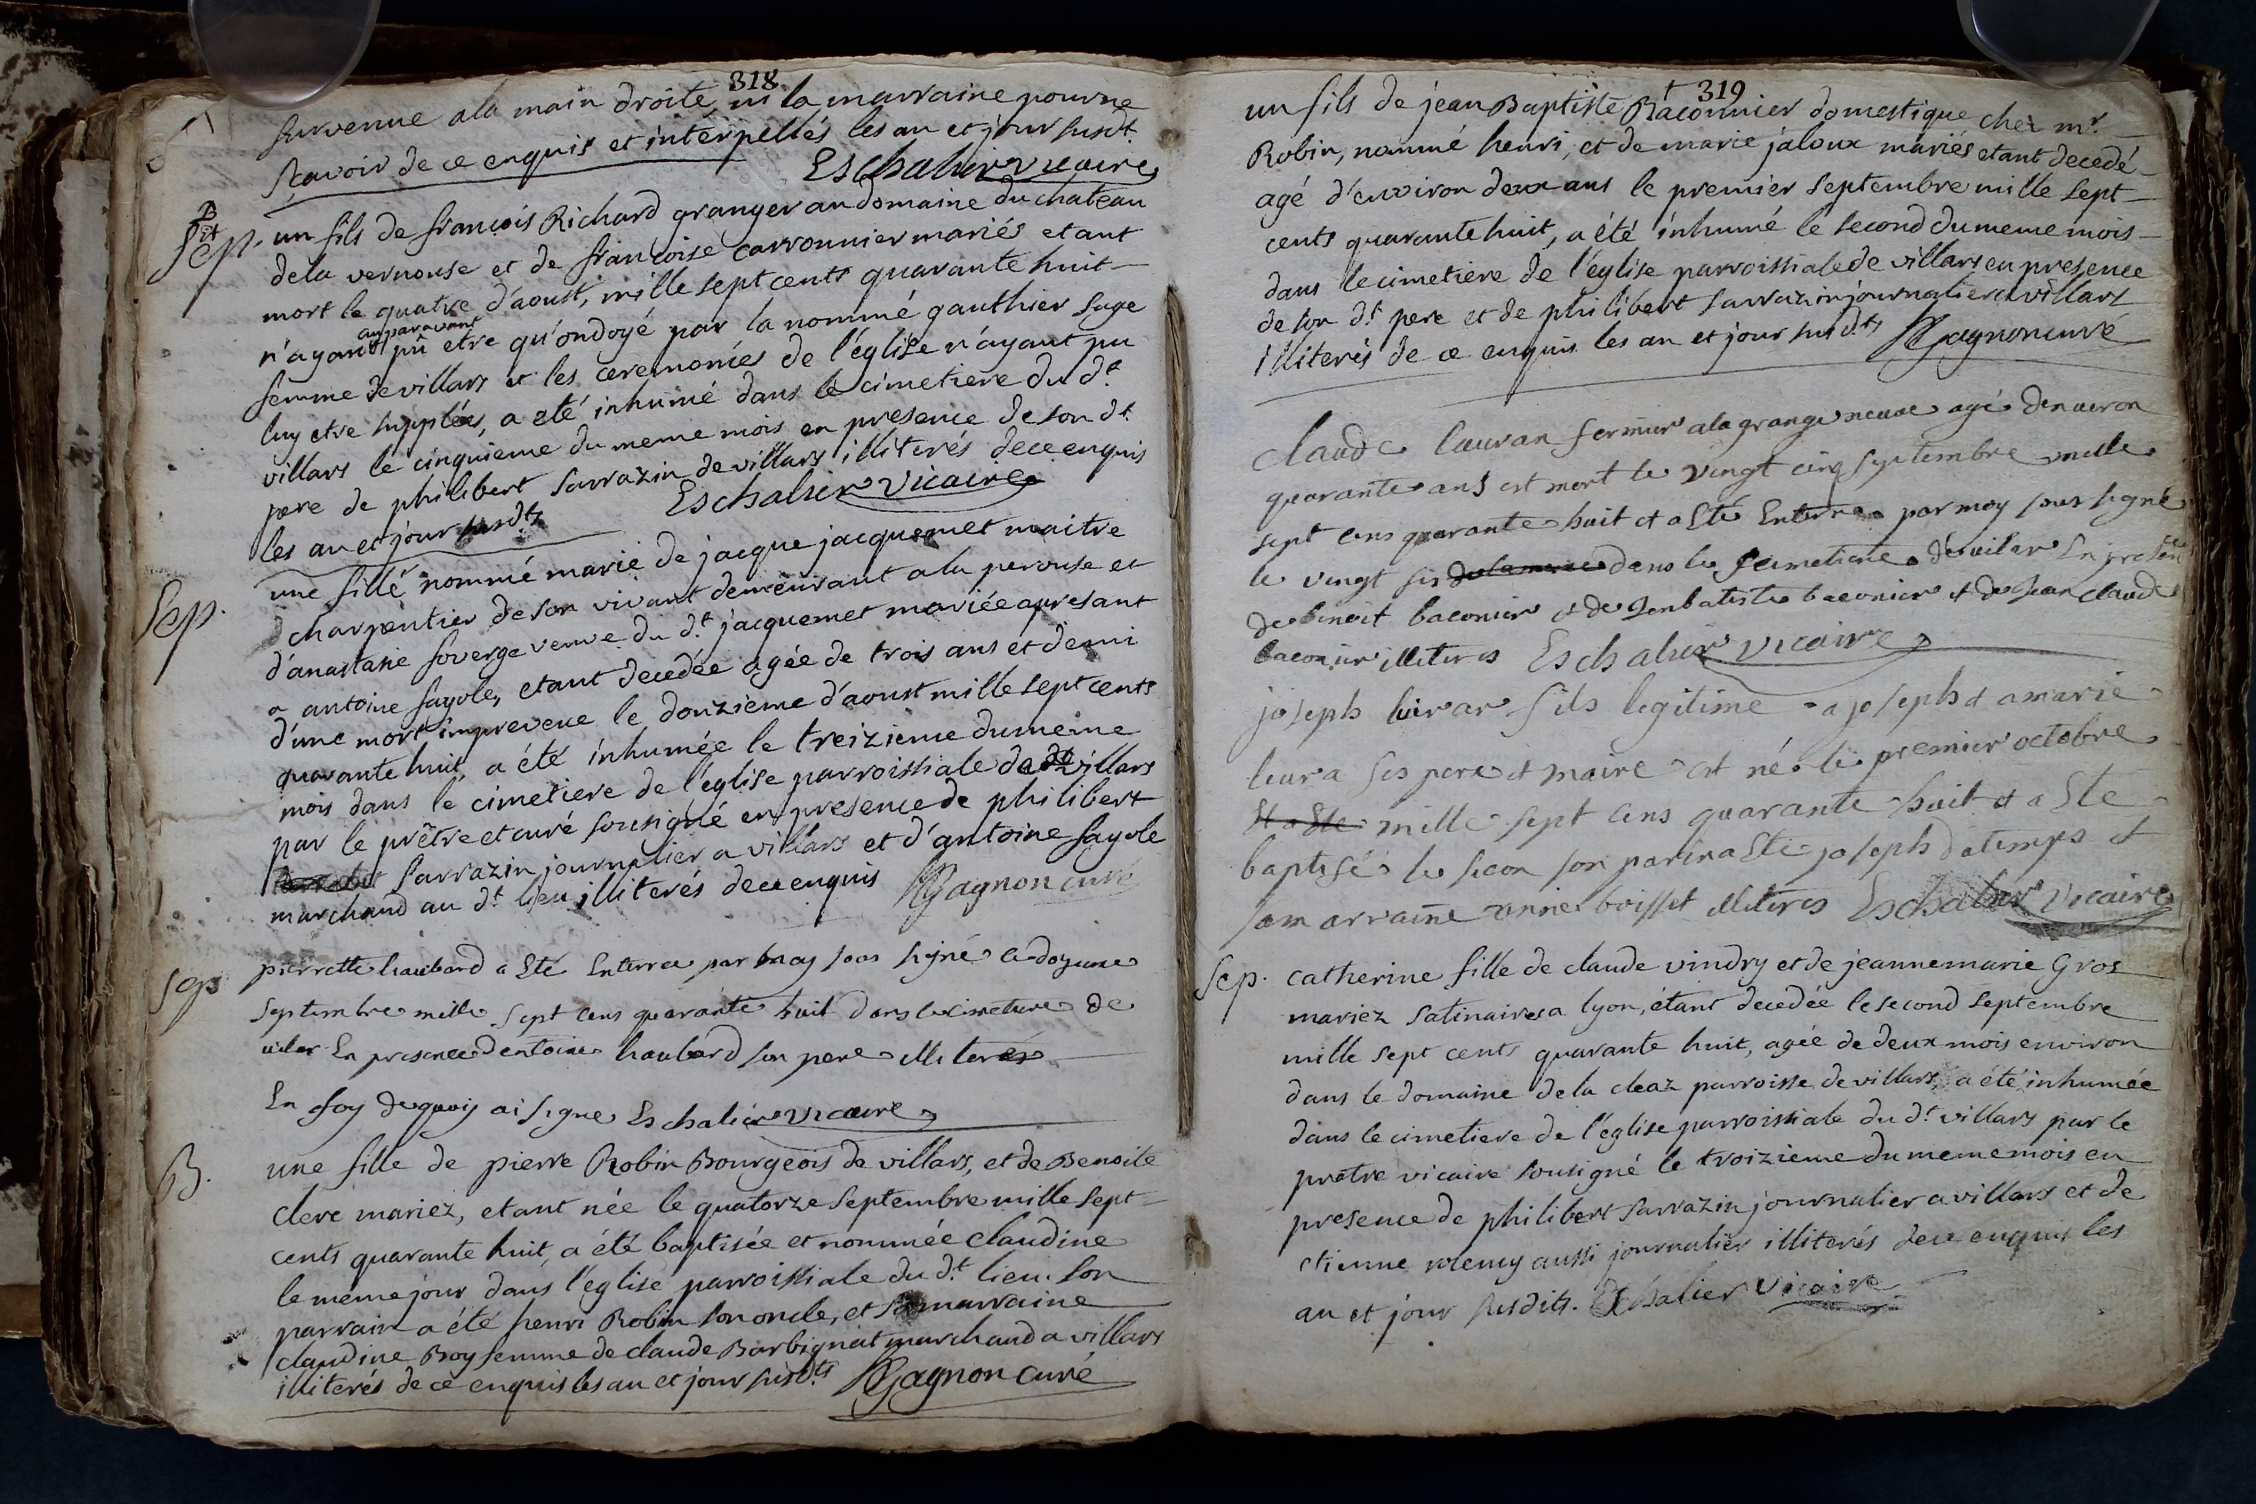 318
survenue a la main droite, ni la marraine pour ne
sçavoir de ce enquis et interpellés les an et jour susdt
Eschalier vicaire
B et
Sep. un fils de françois Richard granger au domaine du chateau
de la vernouse et de françoise carronnier mariés etant
mort le quatre d'aoust, mille sept cents quarante huit
auparavant
n'ayant pû etre qu'ondoyé par la nommé gauthier sage
femme de villars et les ceremonies de l'église n'ayant pu
luy etre supplées, a été inhumé dans le cimetiere du dt.
villars le cinquieme du meme mois en presence de son dt.
pere de philibert sarrazin de villars illiterés de ce enquis
les an et jour susdts Eschalier vicaire
Sep. une fille nommé marie de jacque jacquemet maitre
charpentier de son vivant demeurant a la perouse et
d'anastasie soverge veuve du dt. jacquemet mariée apresant
a antoine fayole, etant decedée agée de trois ans et demi
d'une mort impreveue le douzieme d'aoust mille sept cents
quarante huit, a été inhumée le treizieme du meme
mois dans le cimetiere de l'église parroissiale de villars
par le prêtre et curé sousigné en presence de philibert
sarrazin journalier a villars et d'antoine fayole
marchand au dt. lieu, illiterés de ce enquis Gagnon curé
Sep. pierrette haubard a Eté Enterree par moy sous signé
septembre mille sept cens quarante huit dans le cimetiere de
vilar En presence dentoine haubard son pere illiterés
En foy de quoy ai signe Eschalier vicaire
B. une fille de pierre Robin Bourgeois de villars, et de Benoite
clere mariez, etant née le quatorze septembre mille sept
cents quarante huit, a été baptisée et nommée claudine
le meme jour dans l'eglise parroissiale du dt. lieu. son
parrain a été henri Robin son oncle, et sa marraine
claudine Boy femme de claude Barbignat marchand a villars
illiterés de ce enquis les an et jour susdts Gagnon curé
319
un fils de jean Baptiste Raconnier domestique chez mr.
Robin, nommé henri, et de marie jaloux mariés etant decedé
agé d'environ deux ans le premier septembre mille sept
cents quarante huit, a été inhumé le second du meme mois
dans le cimetiere de l'église parroissiale de villars en presence
de son dt. pere et de philibert sarrazin journalier a villars
illiterés de ce enquis les an et jour susdts Gagnon curé
claude lauran fermier a la grange neuve agé denviron
quarante ans est mort le vingt cinq septembre mille
sept cens quarante huit et a Eté Enterre par moy sous signé
le vingt six dans le semetiere de vilar En presence
de benoit baconier et de Janbatiste baconier et de Jean claude
baconier illiteres Eschalier vicaire
joseph fils legitime a joseph et a marie
leura ses pere et maire est né le premier octobre
Et a Ete mille sept cens quarante huit et a Ete
baptisé le secon son parin a Ete joseph datemps et
sa marraine anne boisset illiteres Eschalier vicaire
Sep. catherine fille de claude vindry et de jeanne marie Gros
mariez satinaires a lyon, étant decedée le second septembre
mille sept cents quarante huit, agée de deux mois environ
dans le domaine de la cleaz parroisse de villars, a été inhumée
dans le cimetiere de l'église parroissiale du dt. villars par le
prêtre vicaire sousigné le troizieme du meme mois en
presence de philibert sarrazin journalier a villars et de
etienne remy aussi journalier illiterés de ce enquis les
an et jour susdits. Eschalier vicaire